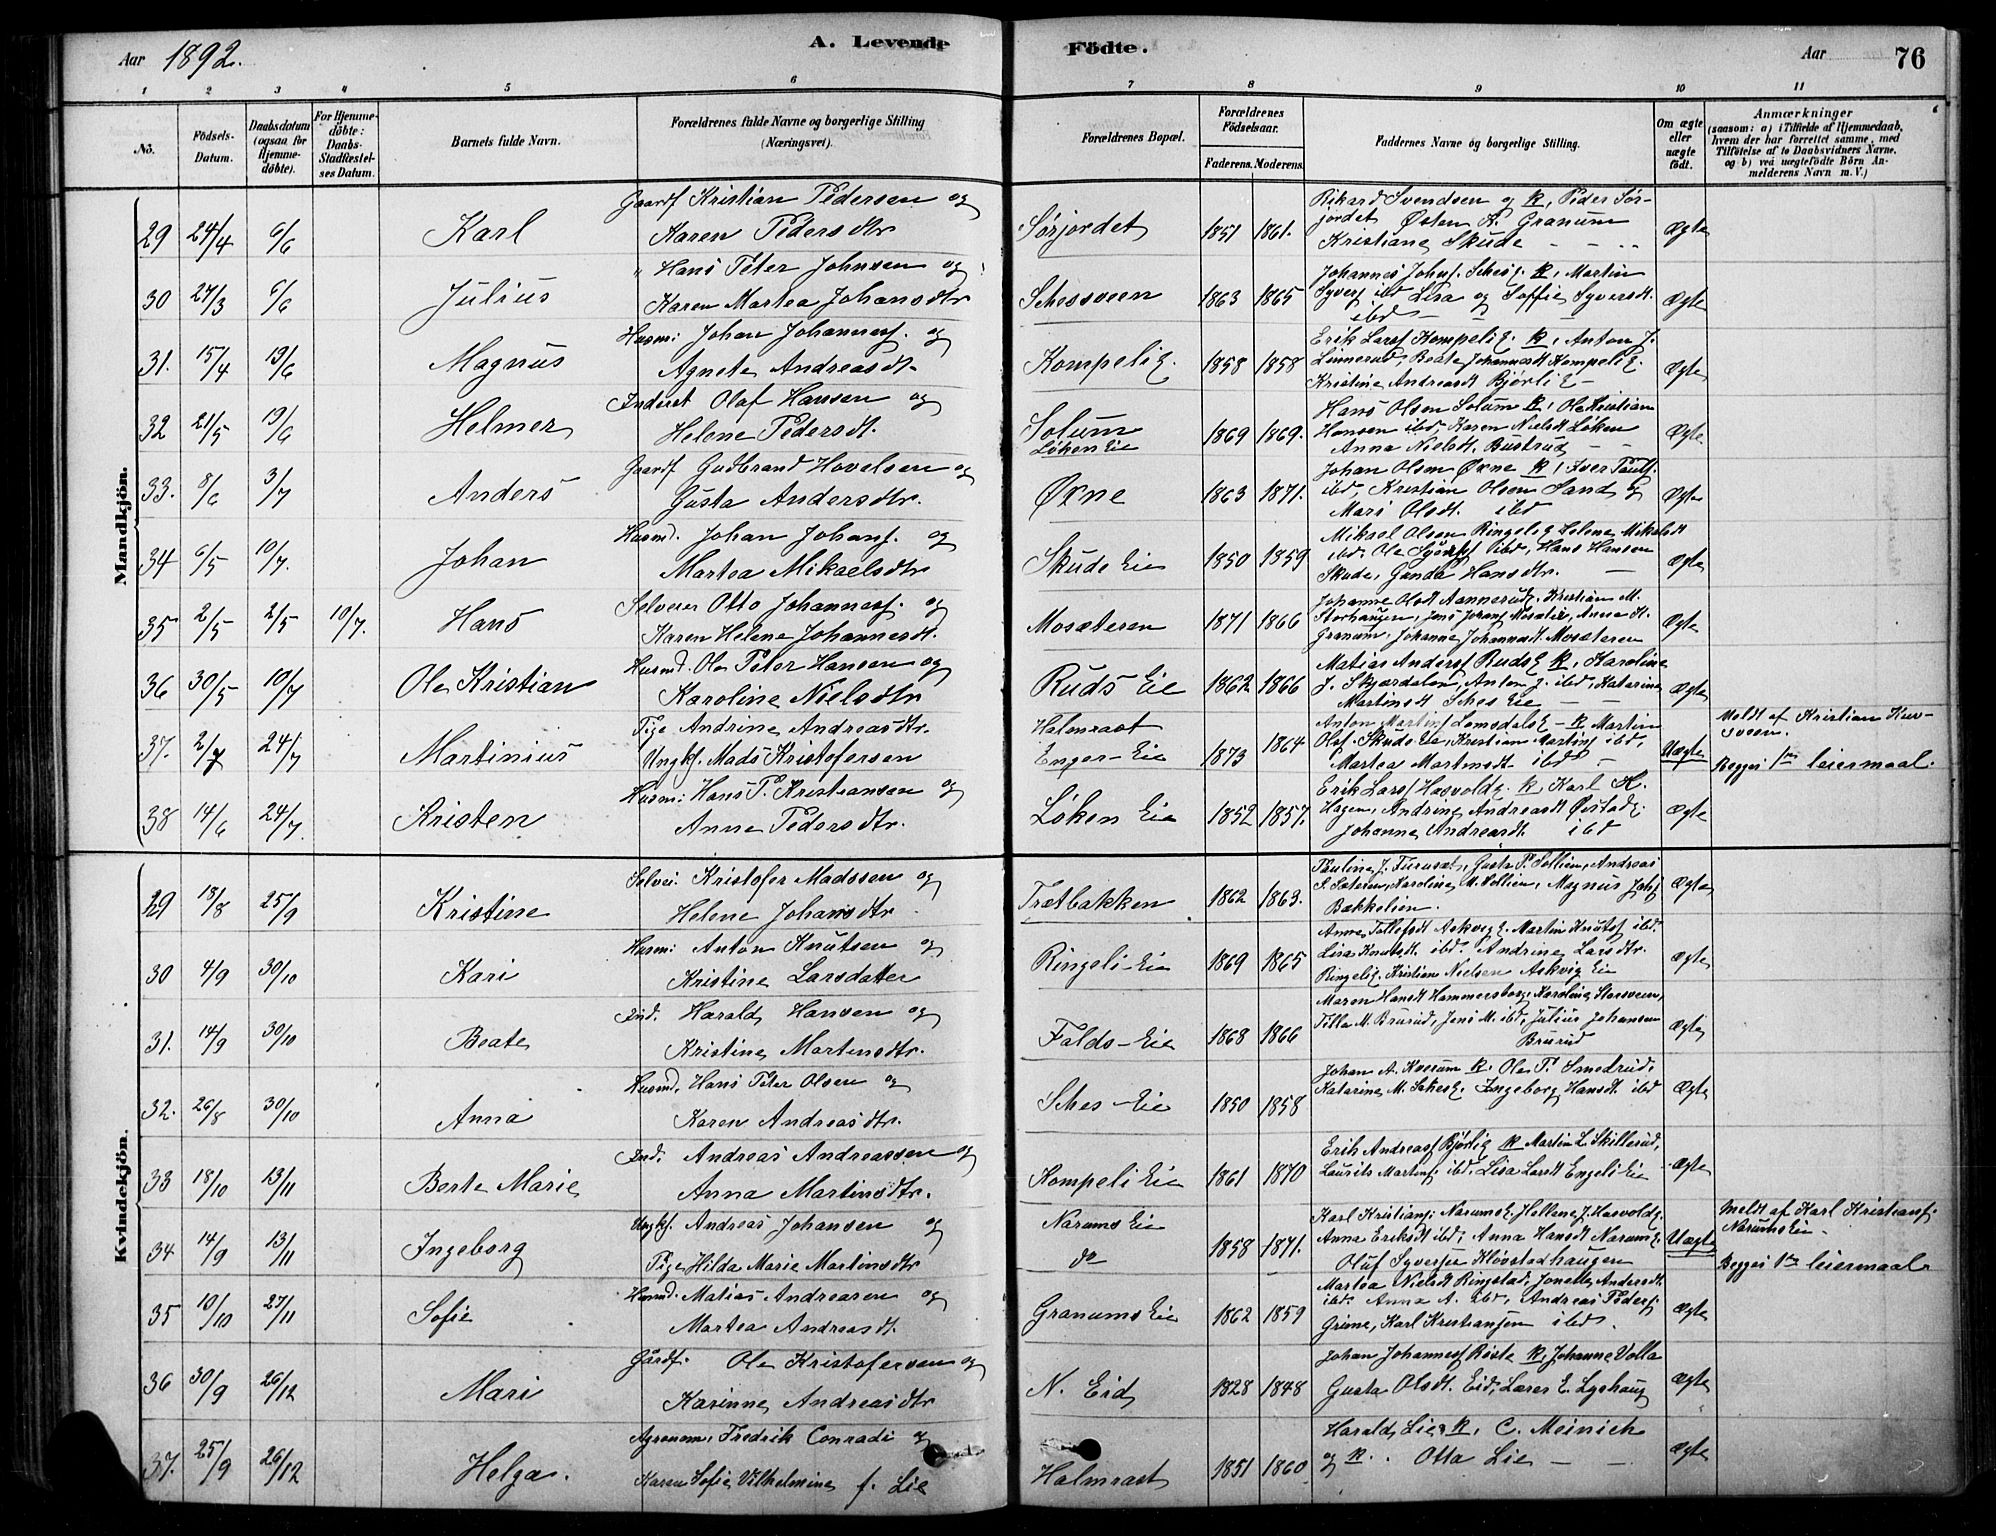 Aar 1892. A. Levende Födte. Aar 76
1 2 3 4 5 6 7 8 9 10 11
No. Födsels-Datum. Daabsdatum (ogsaa for Hjemmedöbte). For Hjemmedöbte: Daabs-Stadfæstelses Datum. Barnets fulde Navn. Forældrenes fulde Navne og borgerlige Stilling (Næringsvei). Forældrenes Bopæl. Forældrenes Födselsaar. Faderens. Moderens. Faddernes Navne og borgerlige Stilling. Om ægte eller uægte födt. Anmærkninger (saasom: a) i Tilfælde af Hjemmedaab, hvem der har forrettet samme, med Tilföielse af to Daabsvidners Navne, og b) ved uægtefödte Börn Anmelderens Navn m. V.)
Mandkjön.
29 24/4 6/6 Karl Gaardf Kristian Pedersen og
Karen Pedersdtr Sørjordet 1851 1861. Rikard Svendsen og k, Peder Sør-
jordet Østen A. Granum
Kristiane Skude Ægte
30 27/3 6/6 Julius " Hans Peter Johnsen og
Karen Martea Johansdtr Schessveen 1863 1865 Johannes Johns. k, Martin
Syvers ibd Lisa og Soffie Syversdt.
ibd Ægte
31. 15/4 19/6 Magnus Husm: Johan Johannesf. og
Agnete Andreasdt. Kompelie. 1858 1858 Erik Larsf Kompelie. k, Anton J.
Linnerud, Beate Johannesdt Kompelie.
Kristine Andreasdt Bjørlie Ægte
32 21/5 19/6 Helmer Inderst Olaf Hansen og
Helene Pedersdt. Solum
Løken Eie 1869 1869. Hans Olsen Solum k, Ole Kristian
Hansen ibd, Karen Nielsdt Løken
Anna Nielsdt. Bustrud Ægte
33. 8/6 3/7 Anders Gaardf Gudbrand Hovelsen og
Gusta Andersdtr. Øxne 1863 1871. Johan Olsen Øxne k, Iver
ibd, Kristian Olsen Sand og
Mari Olsdt. ibd Ægte
34 6/5 10/7. Johan Husmd. Johan Johansf. og
Martea Mikaelsdtr Skude Eie 1850 1859 Mikael Olsen Ringelie Helene Mikelsdt
ibd. Ole ibd, Hans Hansen
Skude, Gunda Hansdtr. Ægte
35 2/5 2/5 10/7. Hans Selveier Otto Johannesf. og
Karen Helene Johannesdt. Mosæteren 1871 1866 Johanne Olsdt Aannerud, Kristian M.
Storhaugen, Jens Johansf Mosæter, Anne H.
Granum, Johanne Johannesdt. Mosæteren Ægte
36 30/5 10/7 Ole Kristian Husmd. Ole Peter Hansen og
Karoline Nielsdtr Ruds Eie 1862 1866 Matias Andersf Rudse k, Karoline
J. Skjærdalen, Anton J. ibd, Katarina
Martinsdt Sches Eie Ægte
37. 2/7 24/7 Martinius Pige Andrine Andreasdtr.
Ungkf. Mads Kristofersen Halmrast
Enger-Eie 1873 1864 Anton Martinsf Lomsdalse - k Martin
Olsf. Skude Eie, Kristian Martinsf ibd,
Martea Martinsdt ibd Uægte Meldt af Kristian Kur-
sveen.
Begges 1ste leiermaal.
38 14/6 24/7. Kristen Husm: Hans P. Kristiansen og
Anne Pedersdtr. Løken Eie 1852 1857. Erik Larsf Hasvolde. k, Karl K.
Hagen, Andrine Andreasdt
Johanne Andreasdt. ibd Ægte
Kvindekjön.
29 18/8 25/9 Kristine Selvei. Kristofer Madssen og
Helene Johansdtr. Trætbakken 1862 1863. Pauline J. Furuset, Gusta P. Sollien, Andreas
S. Sæteren, Karoline M. Vollien, Magnus Johsf
Bækkelien. Ægte
30 4/9 30/10 Kari Husm: Anton Knutsen og
Kristine Larsdatter Ringeli-Eie 1869 1865 Anne Tollefsdt Askvige. Martin Knutsf ibd.
Lisa Knutsdt. ibd. Andrine Larsdtr.
Ringelie. Kristian Nielsen Askvig Eie Ægte
31. 14/9 30/10 Beate Ind. Harald Hansen og
Kristine Martensdtr. Falds-Eie 1868 1866 Maren Hansdt Hammersborg, Karoline Storsveen,
Tilla M. Brurud, Jens M. ibd, Julius Johansen
Brurud Ægte
32. 26/8 30/10 Anna Husmd. Hans Peter Olsen og
Karen Andreasdtr. Sches-Eie 1850 1858 Johan A. Kvesum k. Ole P. Smedrud,
Katarine M. Ingeborg Hansdt. ibd Ægte
33 18/10 13/11 Berte Marie Ind. Andreas Andreassen og
Anna Martinsdtr. Kompeli Eie 1861 1870 Erik Andreasf Bjørlie k Martin L. Skillerud,
Laurits Martinsf. ibd, Lisa Larsdt Engeli Eie Ægte
34 14/9 13/11 Ingeborg Ungkf. Andreas Johansen og
Pige Hilda Marie Martinsdtr Narums Eie
do 1858 1871. Karl Kristiansf. Narumse, Hellene J. Hasvolde.
Anna Eriksdt ibd, Anna Hansdt Narume
Oluf Syversen Kløvstadhaugen Uægte Meldt af Karl Kristiansf.
Narums Eie
Begges 1ste leiermaal.
35 10/10 27/11 Sofie Husmd. Matias Andreasen og
Martea Andreasdt. Granums Eie 1862 1859 Martea Nielsdt Ringstad, Jonette Andersdt.
ibd. Anna A. ibd, Andreas Pedersf.
Grime, Karl Kristiansen ibd. Ægte
36 30/9 26/12 Mari Gårdf. Ole Kristofersen og
Karinne Andreasdtr N. Eid 1828 1848 Johan Johannesf Røste k, Johanne Volla
Gusta Olsdt. Eid, Lærer E. Lyshaug Ægte
37. 25/9 26/12 Helga. Agronom, Fredrik Conradi og
Karen Sofie Vilhelmine f. Lie Halmrast 1851 1860 Harald Lie k, C. Meinich
og k. Otta Lie Ægte